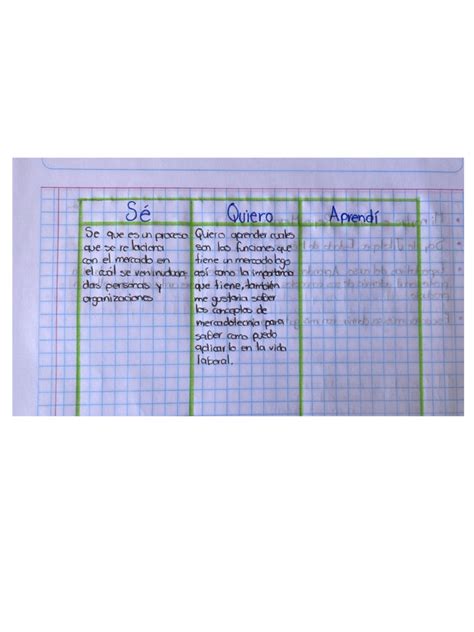 Sé
Quiero
Aprendí
Se que es un proceso
que se relaciona
con el mercado en
el cuál se ven inducra
das personas y
organizaciones
Quiero aprender cuales
son las funciones que
tiene un mercadologo
así como la importancia
que tiene, también
me gustaria saber
los conceptos de
mercadotecnia para
saber como puedo
aplicarlo en la vida
laboral.